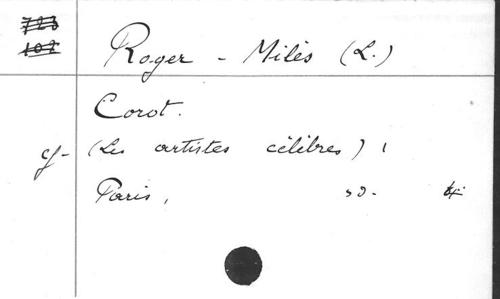 723
102
Roger - Milès (L.)
Corot.
cf- (Les artistes célèbres) ,
Paris, s.d. 4º